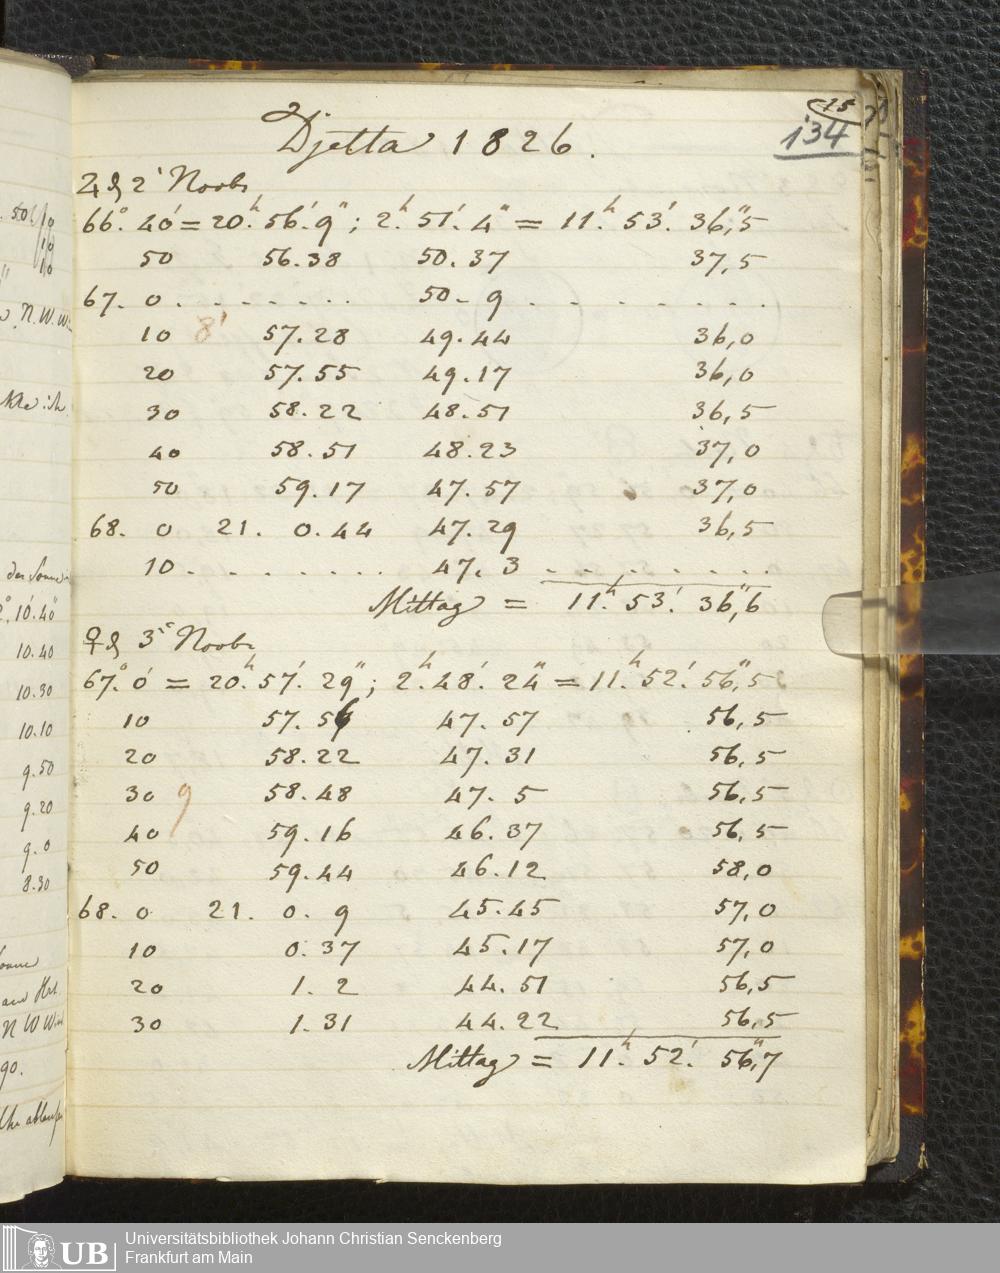 15
134
Djetta 1826.
♃ d 2' Novbr
66°. 40' = 20h. 56'. 9"; 2h. 51'. 4" = 11h. 53'. 36",5
50 56.38 50.37 37,5
67. 0 . . . . . . . . 50. 9 . . . . . . . .
10 8' 57.28 49.44 36,0
20 57.55 49.17 36,0
30 58.22 48.51 36,5
40 58.51 48.23 37,0
50 59.17 47.57 37,0
68. 0 21. 0.44 47.29 36,5
10 . . . . . . . . 47. 3 . . . . . . . .
Mittag = 11h. 53'. 36",6
♀ d 3' Novbr
67°. 0' = 20h. 57'. 29"; 2h. 48'. 24" = 11h. 52'. 56",5
10 57.56 47.57 56,5
20 58.22 47.31 56,5
30 9 58.48 47. 5 56,5
40 59.16 46.37 56,5
50 59.44 46.12 58,0
68. 0 21. 0. 9 45.45 57,0
10 0.37 45.17 57,0
20 1. 2 44.51 56,5
30 1.31 44.22 56,5
Mittag = 11h. 52'. 56",7
N.W.W
der Sonne
10'.40"
10.40
10.30
10.10
9.50
9.20
9.0
8.30
N W Wind
90.
UB
Universitätsbibliothek Johann Christian Senckenberg
Frankfurt am Main